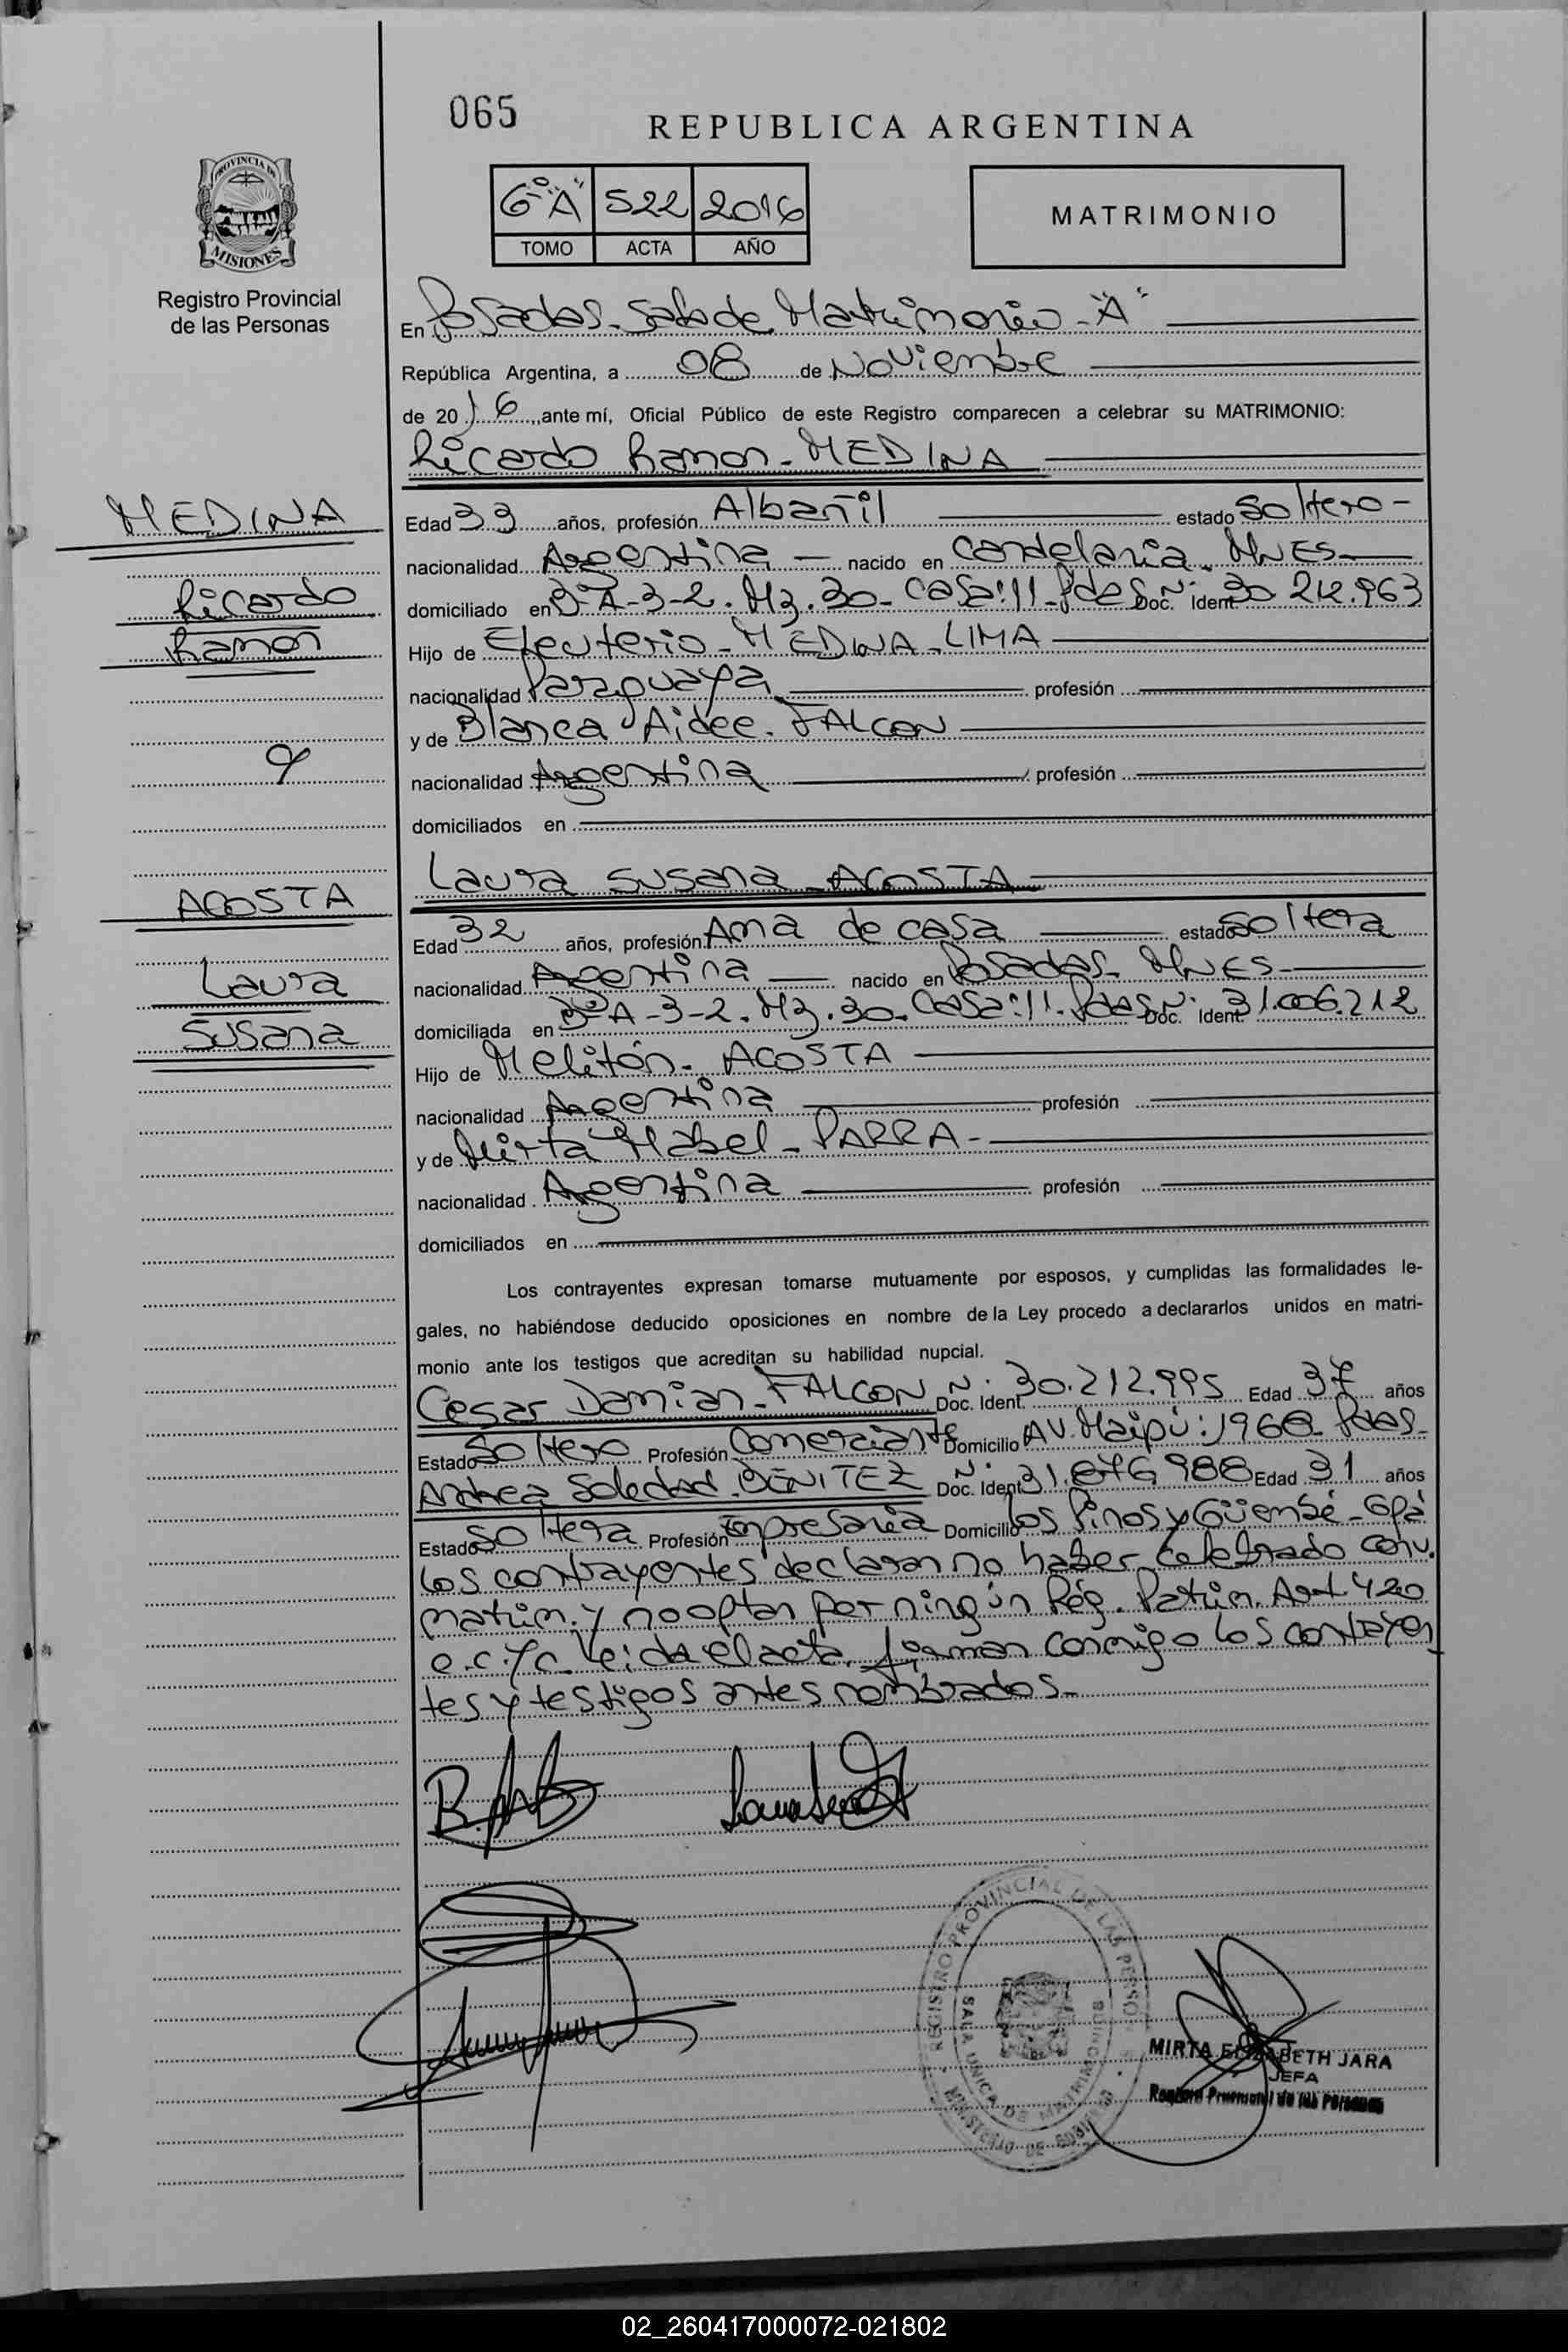 065
REPUBLICA ARGENTINA
PROVINCIA DE
MISIONES
Registro Provincial
de las Personas
6º "A" 522 2016
TOMO ACTA AÑO
MATRIMONIO
En Posadas - Sala de Matrimonio - "A"
República Argentina, a 08 de Noviembre
de 2016, ante mí, Oficial Público de este Registro comparecen a celebrar su MATRIMONIO:
Ricardo Ramon - MEDINA
MEDINA
Ricardo
Ramon
y
ACOSTA
Laura
Susana
Edad 33 años, profesión Albañil estado Soltero -
nacionalidad Argentina - nacido en Candelaria - MNES -
domiciliado en A-3-2. Mz. 30 - Casa: 11 - Pdas Doc. Ident. Nº 30.212.963
Hijo de Eleuterio - MEDINA - LIMA
nacionalidad Paraguaya profesión
y de Blanca Aidee - FALCON
nacionalidad Argentina profesión
domiciliados en
Laura Susana - ACOSTA
Edad 32 años, profesión Ama de casa estado Soltera
nacionalidad Argentina - nacido en Posadas - MNES -
domiciliada en A-3-2. Mz. 30 - Casa: 11 - Pdas Doc. Ident. Nº 31.006.212
Hijo de Melitón - ACOSTA
nacionalidad Argentina profesión
y de Mirta Mabel - PARRA -
nacionalidad Argentina profesión
domiciliados en
Los contrayentes expresan tomarse mutuamente por esposos, y cumplidas las formalidades le-
gales, no habiéndose deducido oposiciones en nombre de la Ley procedo a declararlos unidos en matri-
monio ante los testigos que acreditan su habilidad nupcial.
Cesar Damian - FALCON Doc. Ident. Nº 30.212.995 Edad 37 años
Estado Soltero Profesión Comerciante Domicilio AV. Maipú: 1960 - Pdas -
Andrea Soledad - BENITEZ Doc. Ident. Nº 31.876.988 Edad 31 años
Estado Soltera Profesión Empresaria Domicilio los Pinos y Güembé - Gpá
Los contrayentes declaran no haber celebrado conv.
matrim. y no optan por ningún Rég. Patrim. Art. 420
e. C.y C. Leida el acta, firman conmigo los contrayen
tes y testigos antes nombrados -
REGISTRO PROVINCIAL DE LAS PERSONAS
SALA UNICA DE MATRIMONIOS
MINISTERIO DE GOBIERNO
MIRTA ELIZABETH JARA
JEFA
Registro Provincial de las Personas
02_260417000072-021802